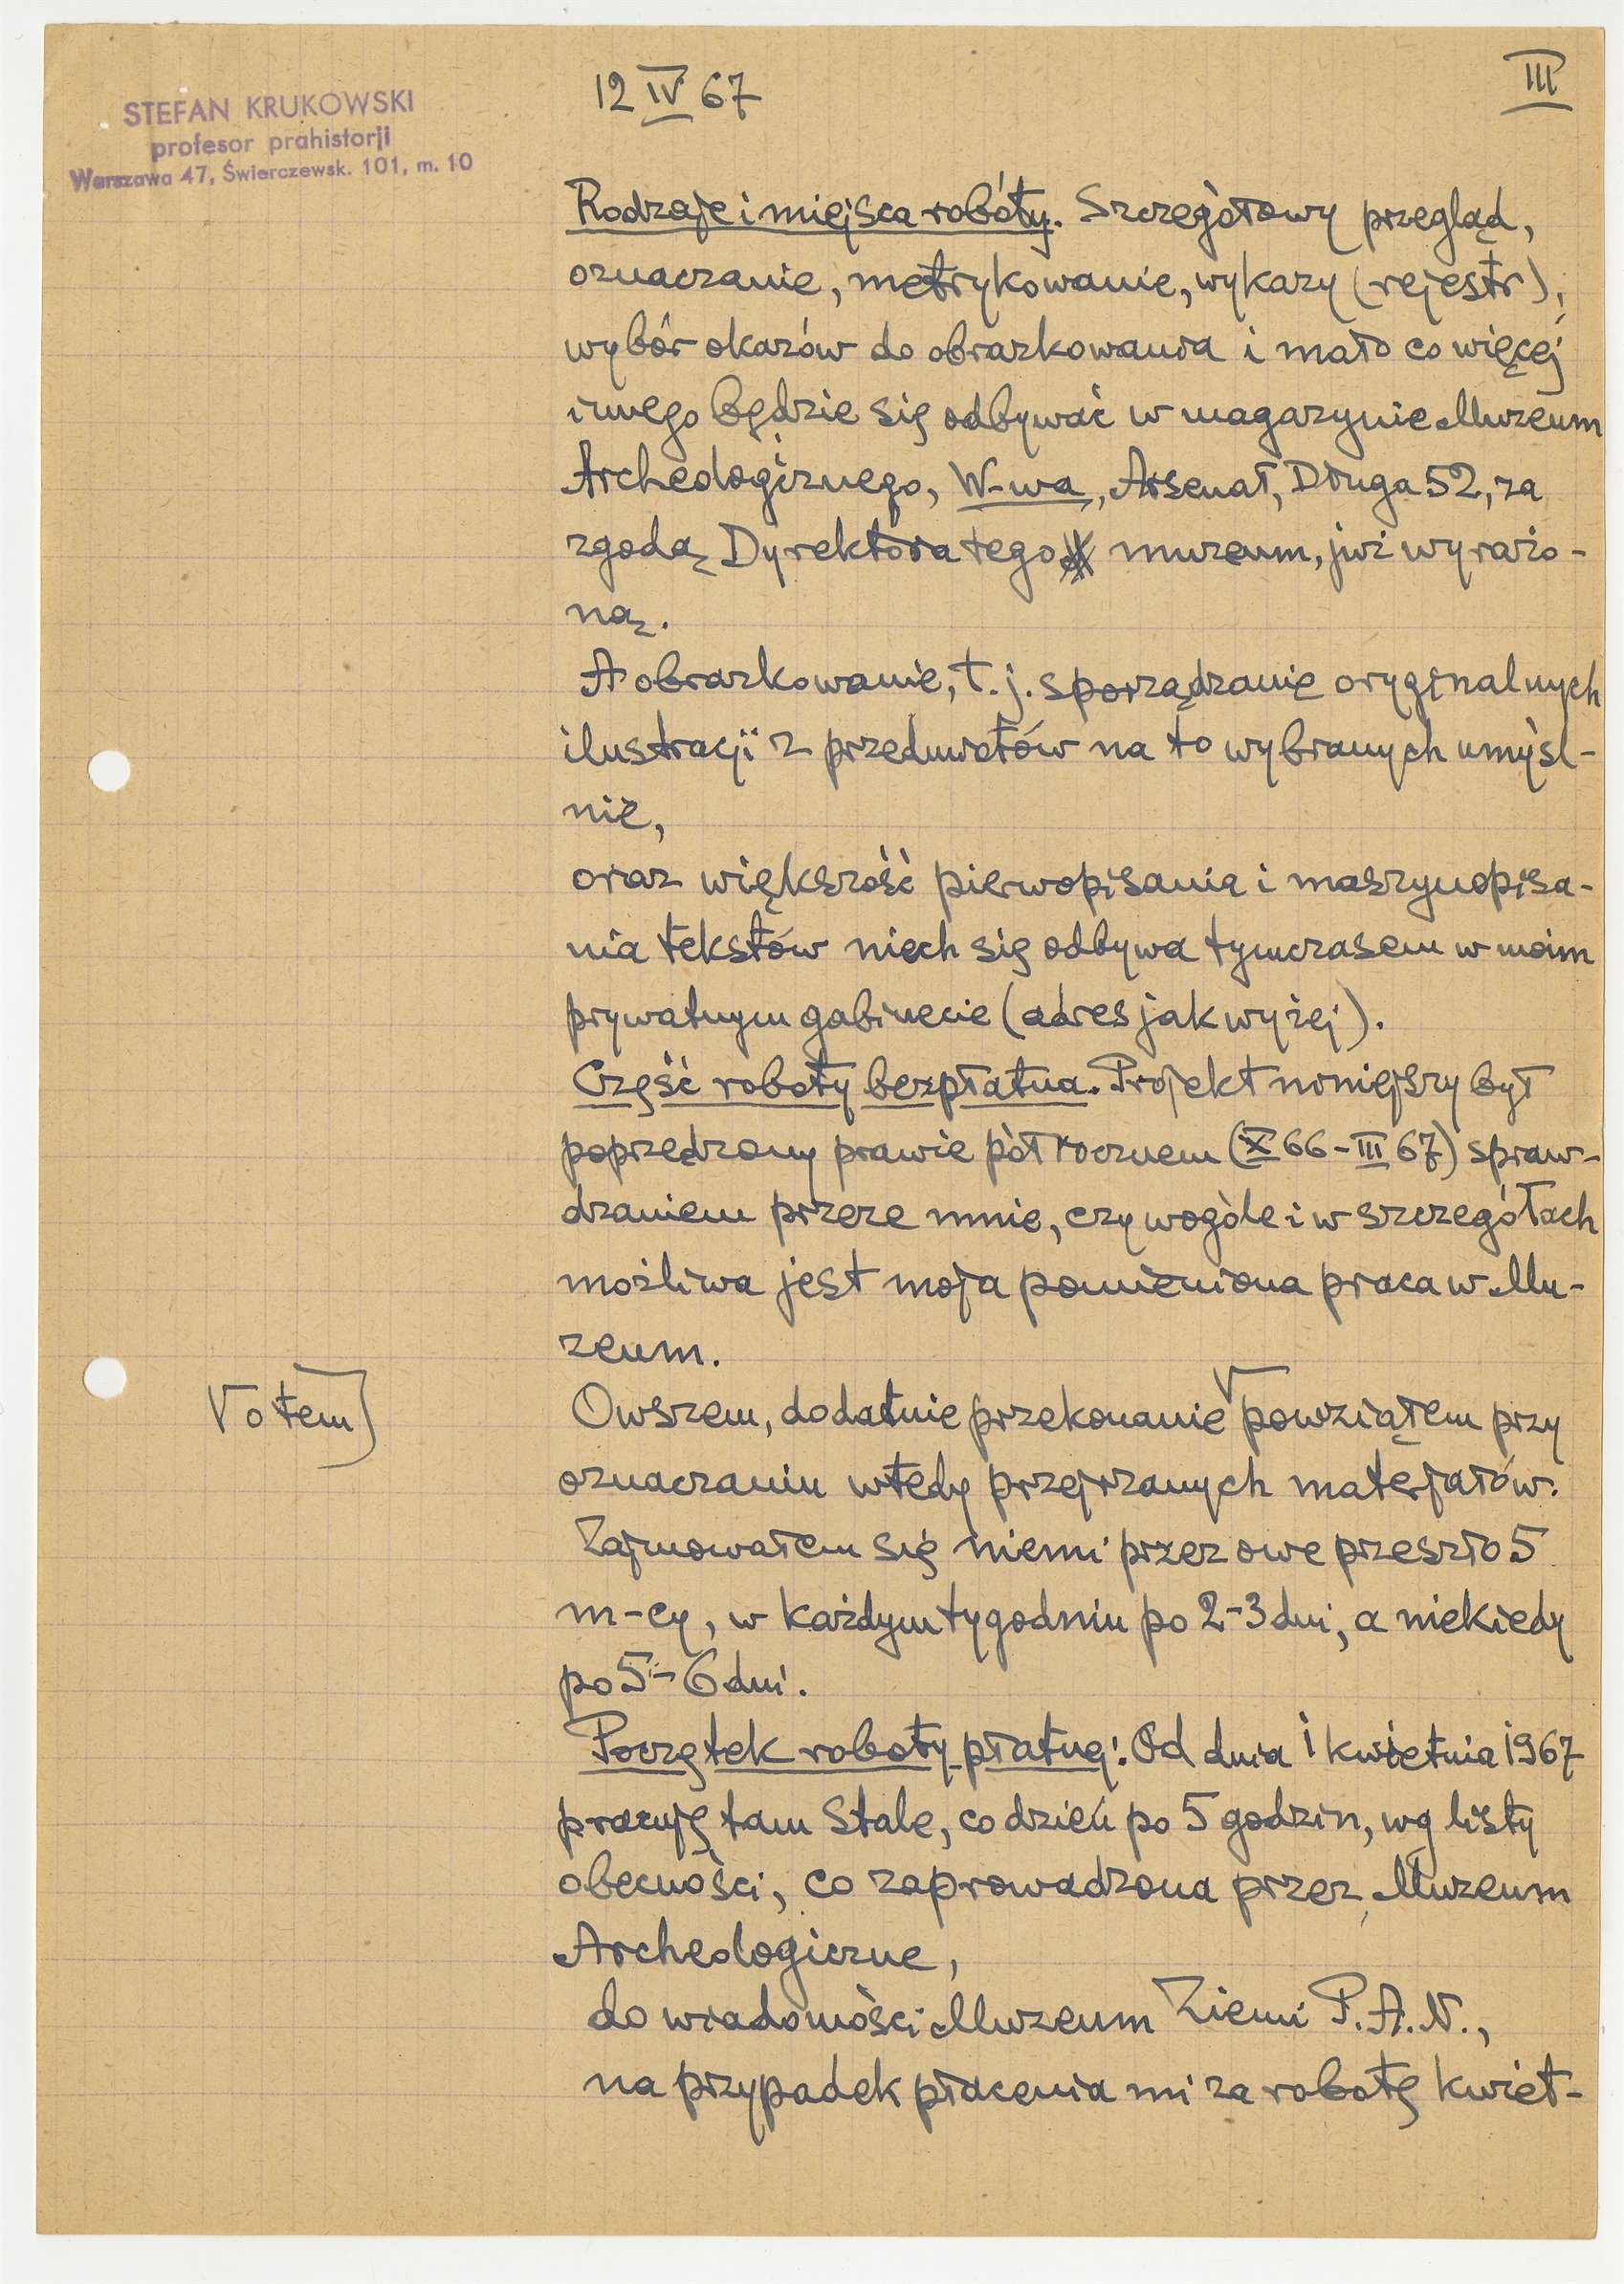 STEFAN KRUKOWSKI
profesor prahistorji
Warszawa 47, Świerczewsk. 101, m. 10
12 IV 67
III
Rodzaje i miejsca roboty. Szczegółowy przegląd,
oznaczanie, metrykowanie, wykazy (rejestr),
wybór okazów do obrazkowania i mało co więcej
innego będzie się odbywać w magazynie Muzeum
Archeologicznego, W-wa, Arsenał, Długa 52, za
zgodą Dyrektora tego muzeum, już wyrażo-
ną.
A obrazkowanie, t.j. sporządzanie oryginalnych
ilustracji z przedmiotów na to wybranych umyśl-
nie,
oraz większość pierwopisania i maszynopisa-
nia tekstów niech się odbywa tymczasem w moim
prywatnym gabinecie (adres jak wyżej).
Część roboty bezpłatna. Projekt niniejszy był
poprzedzony prawie półrocznem (X 66 - III 67) spraw-
dzaniem przeze mnie, czy wogóle i w szczegółach
możliwa jest moja pomieniona praca w Mu-
zeum.
V o tem]
Owszem, dodatnie przekonanie V powziąłem przy
oznaczaniu wtedy przejrzanych materjałów.
Zajmowałem się niemi przez owe przeszło 5
m-cy, w każdym tygodniu po 2-3 dni, a niekiedy
po 5-6 dni.
Początek roboty płatnej: Od dnia 1 kwietnia 1967
pracuję tam stale, co dzień po 5 godzin, wg listy
obecności, co zaprowadzona przez Muzeum
Archeologiczne,
do wiadomości Muzeum Ziemi P.A.N.,
na przypadek płacenia mi za robotę kwiet-